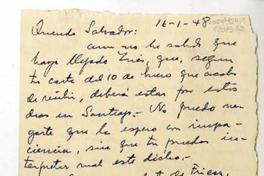 16-1-48
Querido Salvador:
aun no he sabido que
haya llegado Inés, que, según
tu carta del 10 de Enero que acabo
de recibir, deberá estar por estos
días en Santiago.- No puedo ne-
garte que la espero con impa-
ciencia, sin que tu puedas in-
terpretar mal este dicho.-